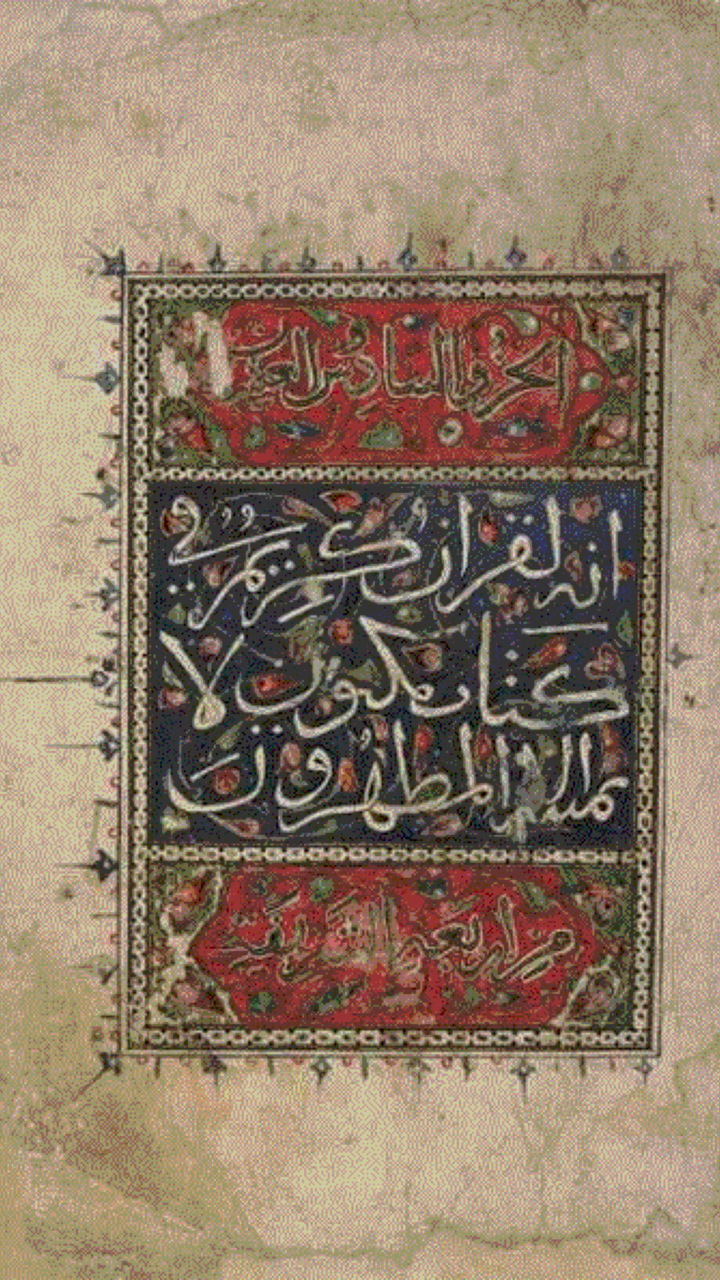 الجزو السادس والعشرون
انه لقران كريم في
كتاب مكنون لا
يمسه الا المطهرون
من اربعة